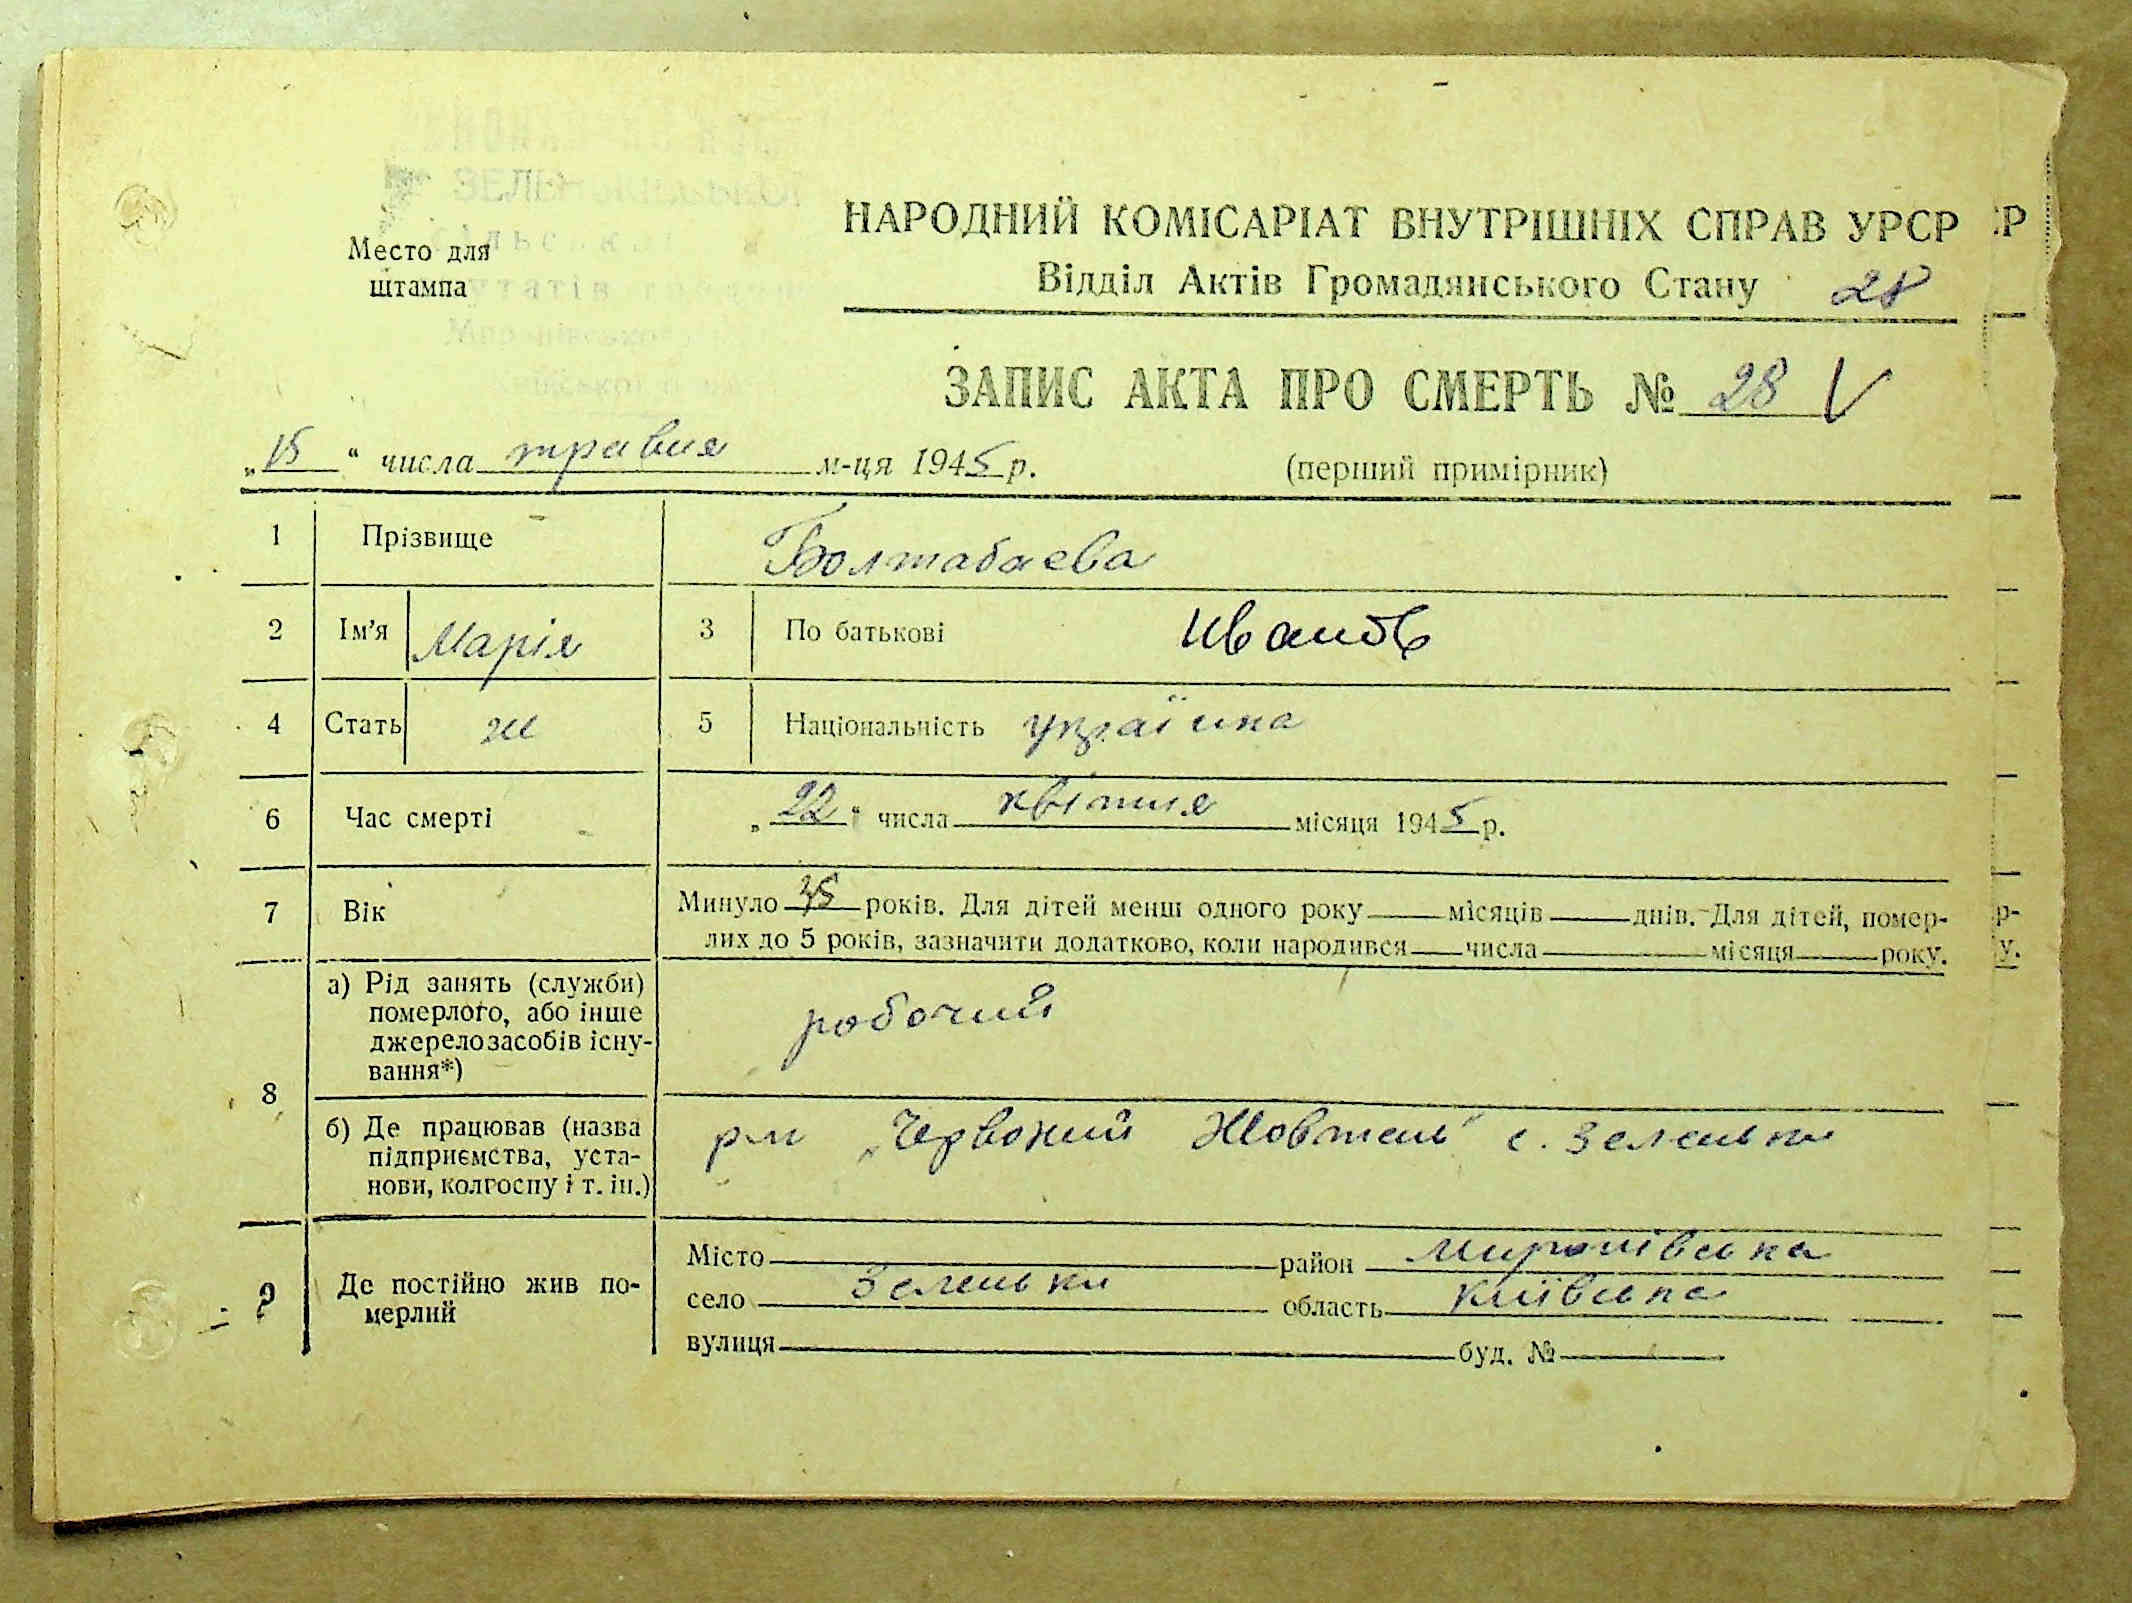 ЗЕЛЬ
Место для
штампа
НАРОДНИЙ КОМІСАРІАТ ВНУТРІШНІХ СПРАВ УРСР
Відділ Актів Громадянського Стану 28
ЗАПИС АКТА ПРО СМЕРТЬ № 28 V
„15“ числа травня м-ця 1945 р. (перший примірник)
1 Прізвище Болтабаева
2 Ім'я Марія 3 По батькові Иванов
4 Стать ж 5 Національність українка
6 Час смерті „22“ числа квітня місяця 1945 р.
7 Вік Минуло років. Для дітей менш одного року місяців днів. Для дітей, помер-
лих до 5 років, зазначити додатково, коли народився числа місяця року.
8 а) Рід занять (служби)
померлого, або інше
джерело засобів існу-
вання*)
робочий
б) Де працював (назва
підприємства, уста-
нови, колгоспу і т. ін.)
„Червоний Жовтень" с. Зеленьки
9 Де постійно жив по-
мерлий
Місто район Миронівська
село Зеленьки область Київська
вулиця буд. №